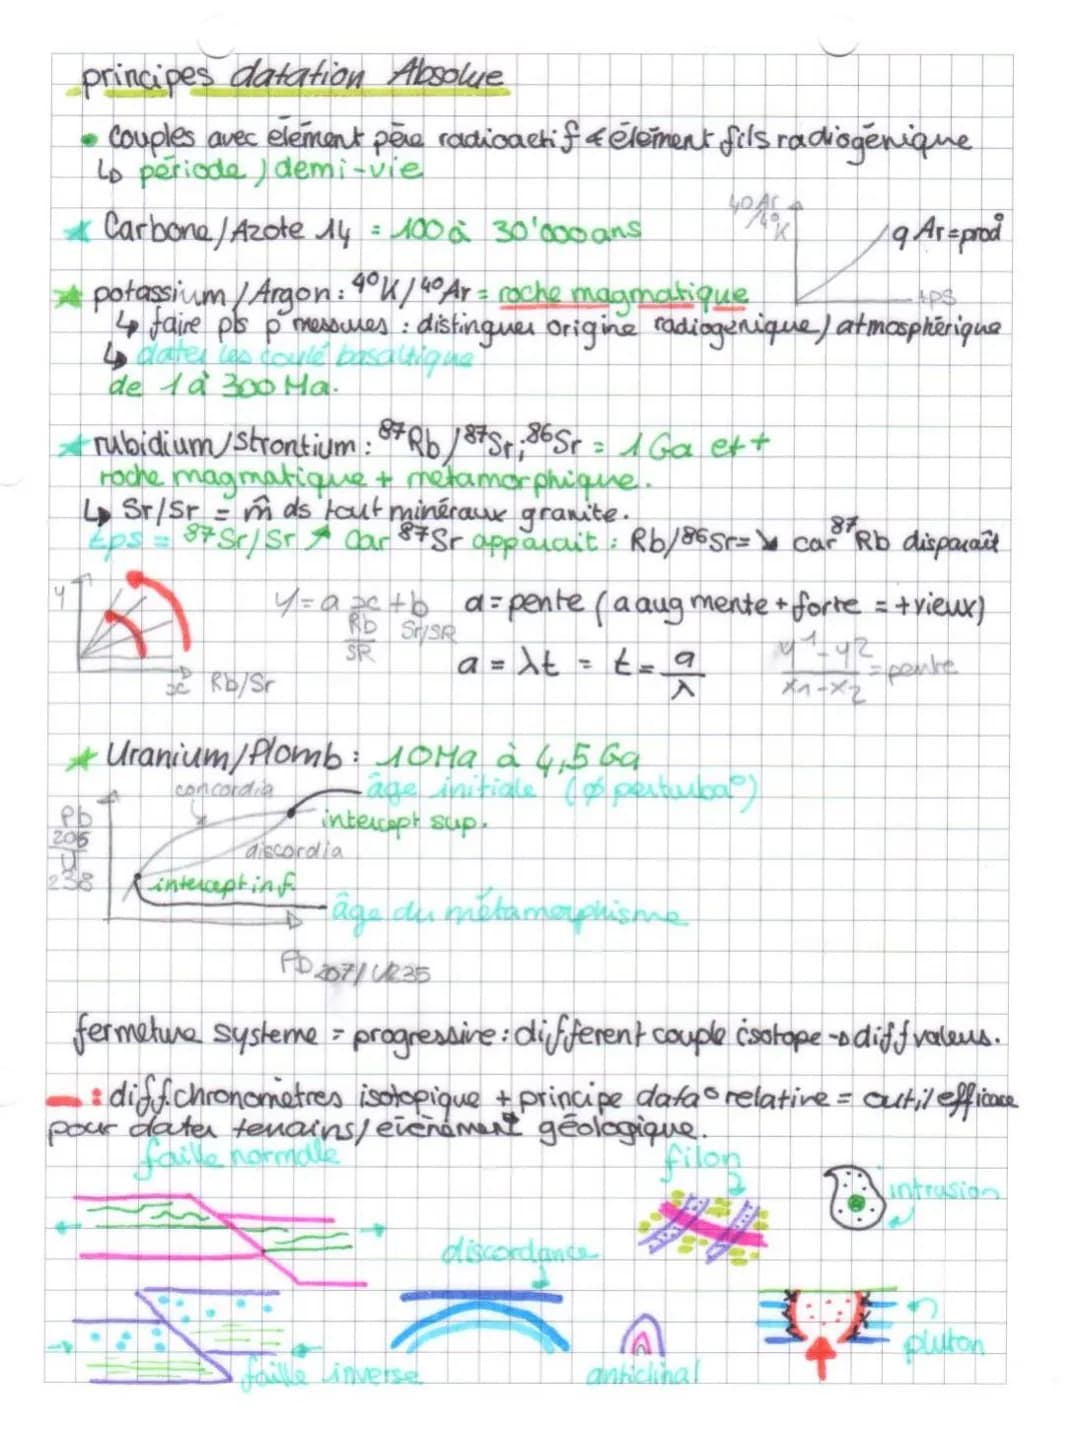 principes datation Absolue
• Couples avec élément père radioactif & élément fils radiogénique
↳ période / demi-vie
★ Carbone/Azote 14 = 100 à 30'000 ans
40Ar/40K
q Ar = prod°
tps
★ potassium / Argon : ⁴⁰K/⁴⁰Ar = roche magmatique
↳ faire pls p messures : distinguer origine radiogénique / atmosphérique
↳ dater les coulé basaltique
de 1 à 300 Ma.
★ rubidium/Strontium : ⁸⁷Rb/⁸⁷Sr;⁸⁶Sr = 1 Ga et +
roche magmatique + métamorphique.
↳ Sr/Sr = m̂ ds tout minéraux granite.
tps = ⁸⁷Sr/Sr ↗ car ⁸⁷Sr apparait : Rb/⁸⁶Sr = ↘ car ⁸⁷Rb disparaît
y
x Rb/Sr
y = a x + b
Rb/SR Sr/SR
a = pente (a augmente + forte = + vieux)
a = λt = t = a/λ
y1-y2/x1-x2 = pente
★ Uranium/Plomb : 10Ma à 4,5 Ga
concordia
âge initiale (∅ perturba°)
Pb 206/U 238
intercept sup.
discordia
intercept inf.
âge du métamorphisme
Pb 207/U235
fermeture systeme = progressive : différent couple isotope → diff valeurs.
— : diff. chronomètres isotopique + principe data° relative = outil efficace
pour dater terrains/évènement géologique.
faille normale
filon
intrusion
discordance
faille inverse
anticlinal
pluton